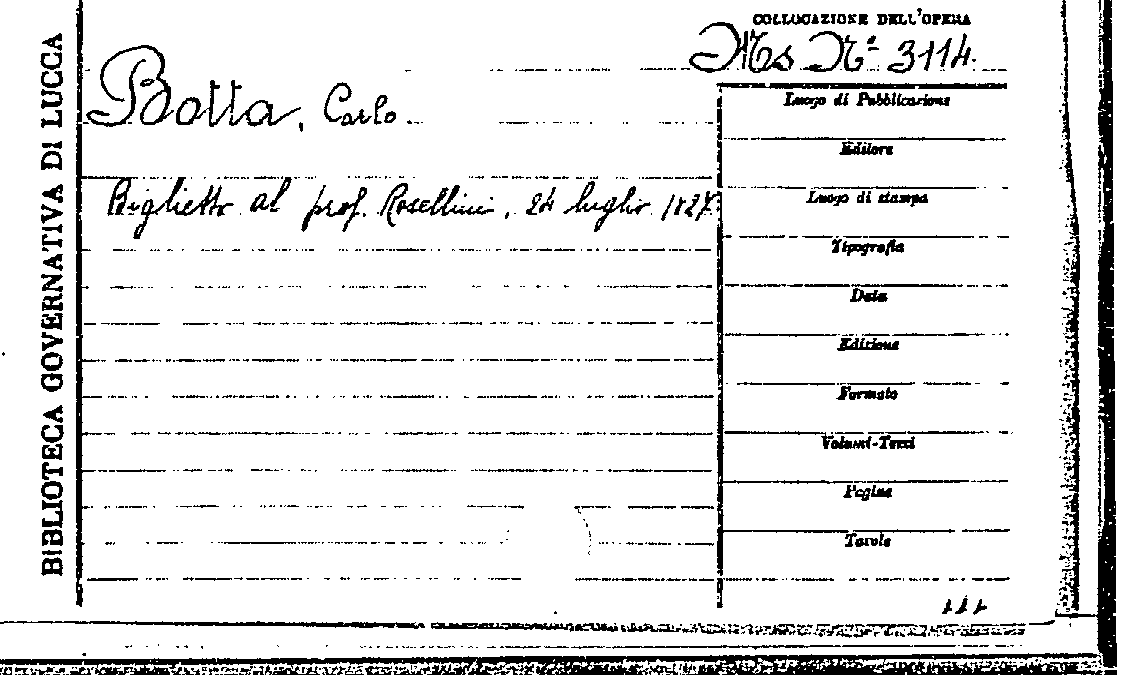 BIBLIOTECA GOVERNATIVA DI LUCCA
COLLOCAZIONE DELL'OPERA
Ms Nº 3114.
Botta, Carlo.
Biglietto al prof. Rosellini, 24 luglio 1827.
Luogo di Pubblicazione
Editore
Luogo di stampa
Tipografia
Data
Edizione
Formato
Volumi-Tomi
Pagine
Tavole